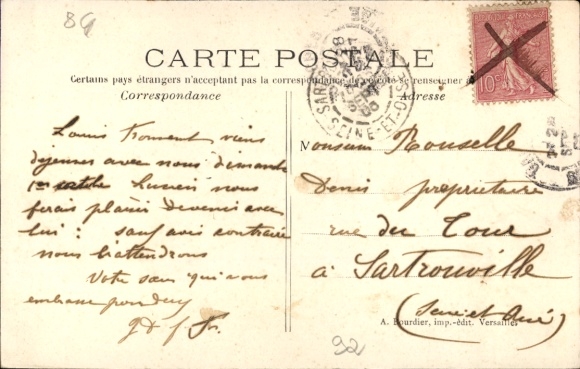 89
CARTE POSTALE
Certains pays étrangers n'acceptent pas la correspondance de ce côté se renseigner
Correspondance
Adresse
10c
SEINE-ET-OISE
Louis Froment viens
dejeuner avec nous dimanche
1er octobre Lucien nous
ferais plaisir de venir avec
lui : sauf avis contraire
nous l'attendrons
Votre sœur qui vous
embrasse pour
Monsieur Rouselle
Denis propriétaire
rue du Tour
à Sartrouville
(Seine et Oise)
A. Bourdier, imp.-édit. Versailles
92